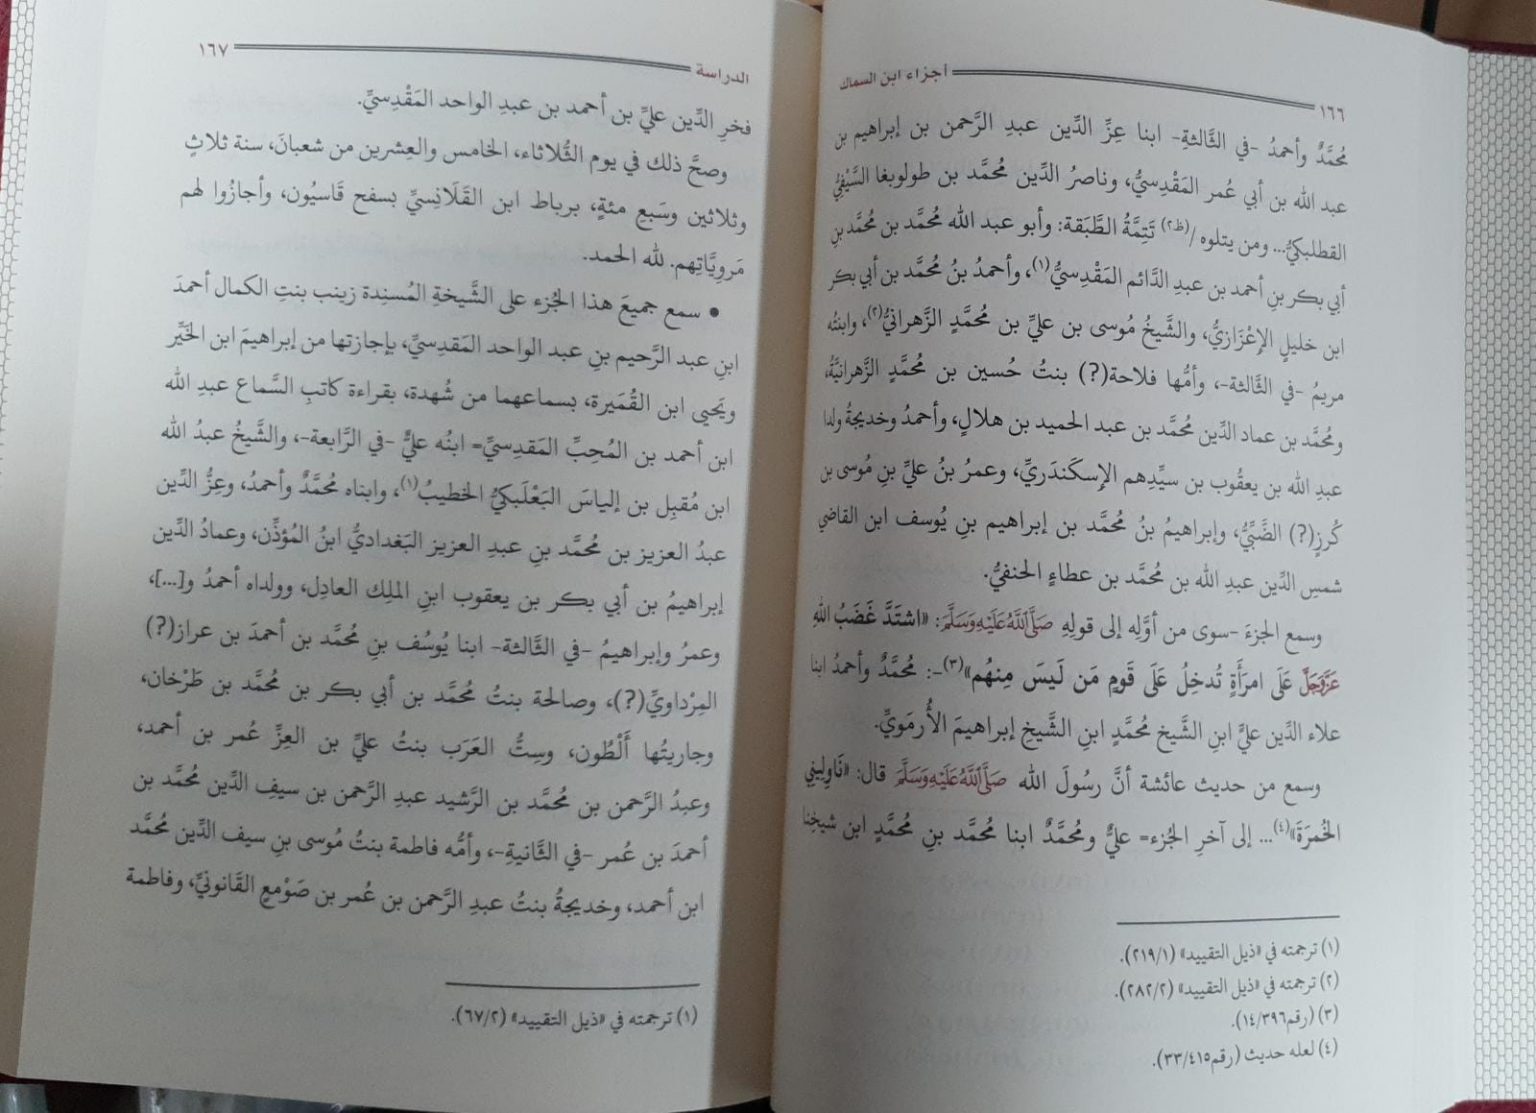 ١٦٦ أجزاء ابن السماك
مُحمَّدٌ وأحمدُ -في الثَّالثةِ- ابنا عِزِّ الدِّين عبدِ الرَّحمن بن إبراهيم بن
عبد الله بن أبي عُمر المَقْدِسيُّ، وناصرُ الدِّين مُحمَّد بن طولوبغا السَّيْفِيُّ
القطلبكيُّ... ومن يتلوه /(ظ٢) تَتِمَّةُ الطَّبَقة: وأبو عبد الله مُحمَّد بن مُحمَّد بنِ
أبي بكر بنِ أحمد بن عبدِ الدَّائم المَقْدِسيُّ(١)، وأحمدُ بنُ مُحمَّد بن أبي بكر
ابن خليلٍ الإعْزَازيُّ، والشَّيخُ مُوسى بن عليِّ بن مُحمَّدٍ الزَّهرانيُّ(٢)، وابنتُه
مريمُ -في الثَّالثة-، وأمُّها فلاحة(?) بنتُ حُسين بن مُحمَّدٍ الزَّهرانيَّةُ،
ومُحمَّد بن عماد الدِّين مُحمَّد بن عبد الحميد بن هلالٍ، وأحمدُ وخديجةُ ولدا
عبدِ الله بن يعقُوب بن سيِّدِهم الإسكَندَريِّ، وعمرُ بنُ عليِّ بنِ مُوسى بن
كُرزٍ(?) الضَّبِّيُّ، وإبراهيمُ بنُ مُحمَّد بن إبراهيم بنِ يُوسف ابن القاضي
شمس الدِّين عبدِ الله بن مُحمَّد بن عطاءٍ الحنفيُّ.
وسمع الجزءَ -سوى من أوَّلِه إلى قولِهِ صَلَّى ٱللَّهُ عَلَيْهِ وَسَلَّمَ: «اشتَدَّ غَضَبُ اللهِ
عَزَّوَجَلَّ عَلَى امرَأَةٍ تُدخِلُ عَلَى قَومٍ مَن لَيسَ مِنهُم»(٣)-: مُحمَّدٌ وأحمدُ ابنا
علاء الدِّين عليِّ ابنِ الشَّيخ مُحمَّدٍ ابنِ الشَّيخ إبراهيمَ الأُرمَويِّ.
وسمع من حديث عائشة أنَّ رسُولَ الله صَلَّى ٱللَّهُ عَلَيْهِ وَسَلَّمَ قال: «نَاوِلِينِي
الخُمرَةَ»(٤)... إلى آخرِ الجُزء= عليٌّ ومُحمَّدٌ ابنا مُحمَّد بنِ مُحمَّدٍ ابن شيخِنا
(١) ترجمته في «ذيل التقييد» (٢١٩/١).
(٢) ترجمته في «ذيل التقييد» (٢٨٢/٢).
(٣) (رقم١٤/٣٩٦).
(٤) لعله حديث (رقم٣٣/٤١٥).
الدراسة ١٦٧
فخرِ الدِّين عليِّ بن أحمد بن عبدِ الواحد المَقْدِسيِّ.
وصحَّ ذلك في يوم الثُّلاثاء، الخامس والعِشرين من شعبانَ، سنة ثلاثٍ
وثلاثين وسَبع مئةٍ، برباط ابن القَلَانِسيِّ بسفح قَاسيُون، وأجازُوا لهم
مَروِيَّاتِهم. لله الحمد.
• سمع جميعَ هذا الجُزء على الشَّيخةِ المُسنِدة زينب بنتِ الكمال أحمدَ
ابنِ عبد الرَّحيم بنِ عبد الواحد المَقدِسيِّ، بإجازتها من إبراهيمَ ابن الخَيِّر
ويَحيى ابن القُمَيرة، بسماعهما من شُهدة، بقراءة كاتبِ السَّماع عبدِ الله
ابن أحمد بن المُحِبِّ المَقدِسيِّ= ابنُه عليٌّ -في الرَّابعة-، والشَّيخُ عبدُ الله
ابن مُقبِل بن إلياسَ البَعْلَبكيُّ الخطيبُ(١)، وابناه مُحمَّدٌ وأحمدُ، وعِزُّ الدِّين
عبدُ العزيز بن مُحمَّد بنِ عبدِ العزيز البَغداديُّ ابنُ المُؤذِّن، وعمادُ الدِّين
إبراهيمُ بن أبي بكر بن يعقوب ابنِ الملِك العادِل، وولداه أحمدُ و[...]،
وعمرُ وإبراهيمُ -في الثَّالثة- ابنا يُوسُف بنِ مُحمَّد بن أحمدَ بن عراز(?)
المِرْداويِّ(?)، وصالحة بنتُ مُحمَّد بن أبي بكر بن مُحمَّد بن طَرْخان،
وجاريتُها أَلْطُون، وسِتُّ العَرَب بنتُ عليِّ بن العِزِّ عُمر بن أحمد،
وعبدُ الرَّحمن بن مُحمَّد بن الرَّشيد عبدِ الرَّحمن بن سيفِ الدِّين مُحمَّد بن
أحمدَ بن عُمر -في الثَّانيةِ-، وأمُّه فاطمة بنتُ مُوسى بنِ سيف الدِّين مُحمَّد
ابن أحمد، وخديجةُ بنتُ عبدِ الرَّحمن بن عُمر بن صَوْمعٍ القَانونيِّ، وفاطمة
(١) ترجمته في «ذيل التقييد» (٦٧/٢).